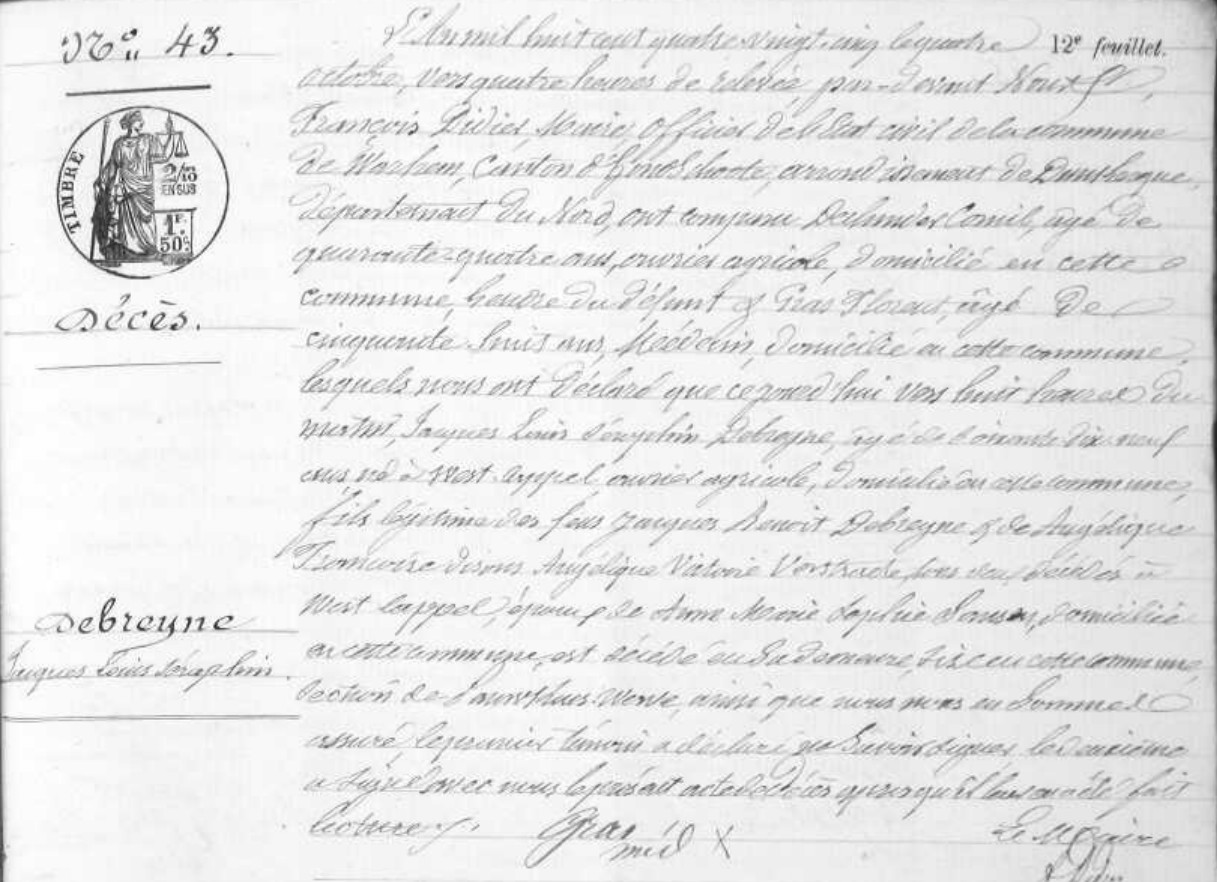 N° 43.
12e feuillet.
TIMBRE
2/10
EN SUS
1F.
50c.
Décès.
Debreyne
Jacques Louis Séraphin.
L'An mil huit cent quatre vingt-cinq le quatre
octobre, vers quatre heures de relevée par-devant Nous
François Didier, Maire, Officier de l'Etat civil de la commune
de Warhem, Canton d'Hondschoote, arrondissement de Dunkerque,
département du Nord, ont comparu Cornil, âgé de
quarante-quatre ans, ouvrier agricole, domicilié en cette
commune, Gendre du défunt & Gras Florent, âgé De
cinquante huit ans, Médecin, domicilié en cette commune,
lesquels nous ont déclaré que cejourd'hui vers huit heures du
matin, Jacques Louis Séraphin Debreyne, âgé de soixante dix neuf
ans né à West-Cappel ouvrier agricole, domicilié en cette commune,
fils légitime des feus Jacques Benoit Debreyne & de Angélique
disons Angélique Victoire Verstraete, tous deux décédés à
West Cappel, époux de Anne Marie Sophie Jansen, domiciliée
en cette commune, est décédé en Sa demeure, sise en cette commune,
Section de ainsi que nous nous en Sommes
assuré le premier témoin a déclaré ne Savoir Signer, le deuxième
a Signé avec nous le présent acte de décès après qu'il leur en a été fait
lecture.
Gras
méd
Le Maire
Didier